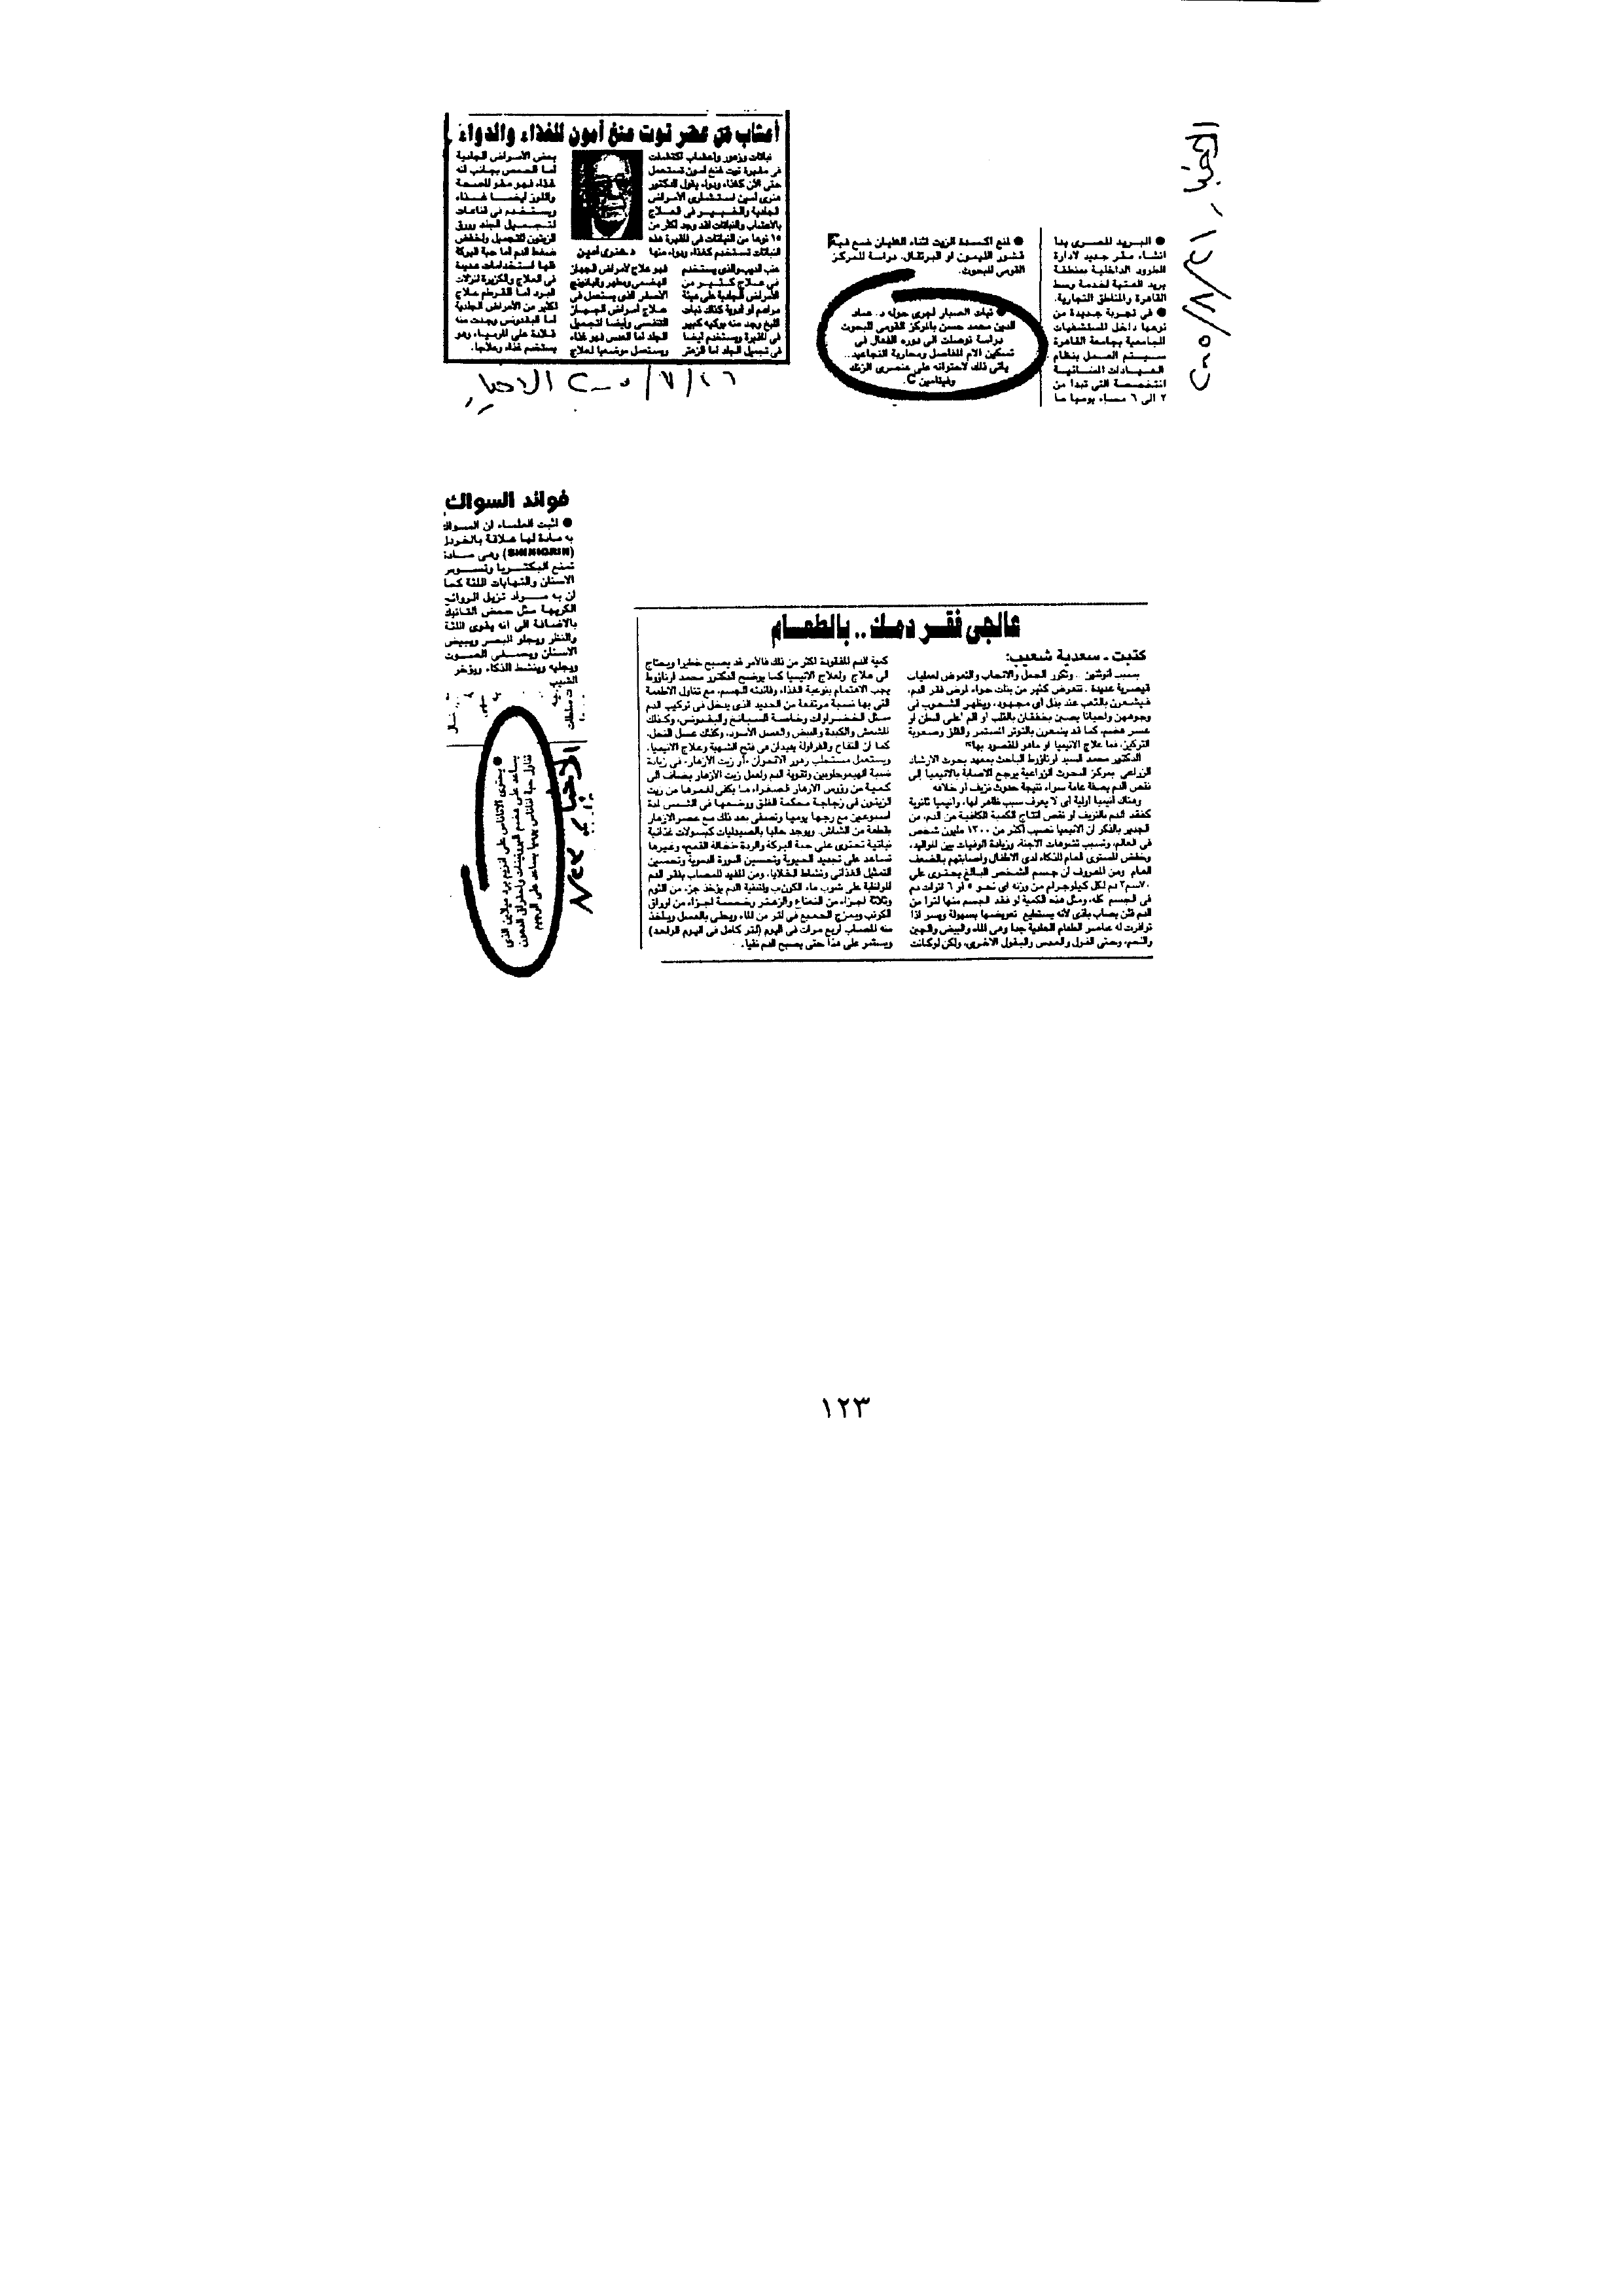 أعشاب من عصر توت عنخ آمون للغذاء والدواء
نباتات وزهور وأعشاب اكتشفت
فى مقبرة توت عنخ آمون تستعمل
حتى الآن كغذاء ودواء يقول الدكتور
هنرى أمين استشارى الأمراض
الجلدية والخبير فى العلاج
بالأعشاب والنباتات لقد وجد أكثر من
١٥ نوعا من النباتات فى المقبرة هذه
النباتات تستخدم كغذاء ودواء منها
عنب الديب والذى يستخدم
فى علاج كثير من
الأمراض الجلدية على هيئة
مراهم أو أدوية كذلك نبات
وجد منه بوكيه كبير
فى المقبرة ويستخدم أيضا
فى تجميل الجلد أما الزعتر
د. هنرى أمين
فهو علاج لأمراض الجهاز
الهضمى ومطهر والبابونج
الأصفر الذى يستعمل فى
علاج أمراض الجهاز
التنفسى وأيضا لتجميل
الجلد أما العدس فهو غذاء
ويستعمل موضعيا لعلاج
بعض الأمراض الجلدية
أما الحمص بجانب أنه
غذاء فهو مقو للصحة
واللوز أيضا غذاء
ويستخدم فى قناعات
لتجميل الجلد وورق
الزيتون للتجميل ولخفض
ضغط الدم أما حبة البركة
فلها استخدامات عديدة
فى العلاج والكزبرة لنزلات
البرد أما القرطم علاج
لكثير من الأمراض الجلدية
أما البقدونس وجدت منه
قلادة على المومياء وهو
يستخدم غذاء وعلاجا.
الاخبار ٢٠٠٥/٧/٢٦
● البريد المصرى بدأ
انشاء مقر جديد لادارة
الطرود الداخلية بمنطقة
بريد العتبة لخدمة وسط
القاهرة والمناطق التجارية.
● فى تجربة جديدة من
نوعها داخل المستشفيات
الجامعية بجامعة القاهرة
سيتم العمل بنظام
العيادات المسائية
المتخصصة التى تبدأ من
٢ الى ٦ مساء يوميا
● لمنع اكسدة الزيت اثناء الغليان ضع فيه
قشور الليمون أو البرتقال. دراسة للمركز
القومى للبحوث.
● نبات الصبار أجرى حوله د. عماد
الدين محمد حسن بالمركز القومى للبحوث
دراسة توصلت الى دوره الفعال فى
تسكين آلام المفاصل ومحاربة التجاعيد..
يأتى ذلك لاحتوائه على عنصرى الزنك
وفيتامين C.
فوائد السواك
● أثبت العلماء ان السواك
به مادة لها علاقة بالخردل
(SINNIGRIN) وهى مادة
تمنع البكتريا وتسوس
الاسنان والتهابات اللثة كما
ان به مواد تزيل الروائح
الكريهة مثل حمض التانيك
بالاضافة الى انه يقوى اللثة
والنظر ويجلو البصر ويبيض
الاسنان ويصفى الصوت
ويجليه وينشط الذكاء ويؤخر
الشيب
● يحتوى الأناناس على انزيم برد ميلاين الذى
يساعد على هضم البروتينات واحتراق الدهون
تناول حبة أناناس يوميا يساعد على الرجيم
الأخبار
عالجى فقر دمك .. بالطعام
كتبت ـ سعدية شعيب:
بسبب أنوثتهن .. وتكرر الحمل والانجاب والتعرض لعمليات
قيصرية عديدة .. تتعرض كثير من بنات حواء لمرض فقر الدم،
فيشعرن بالتعب عند بذل أى مجهود، ويظهر الشحوب فى
وجوههن وأحيانا يصبن بخفقان بالقلب أو ألم أعلى البطن أو
عسر هضم، كما قد يشعرن بالتوتر المستمر والقلق وصعوبة
التركيز، فما علاج الانيميا أو ماهو المقصود بها؟
الدكتور محمد السيد أرناؤوط الباحث بمعهد بحوث الارشاد
الزراعى بمركز البحوث الزراعية يرجع الاصابة بالانيميا إلى
نقص الدم بصفة عامة سواء نتيجة حدوث نزيف أو خلافه
وهناك أنيميا أولية أى لا يعرف سبب ظاهر لها، وأنيميا ثانوية
كفقد الدم بالنزيف أو نقص انتاج الكمية الكافية من الدم، من
الجدير بالذكر أن الانيميا تصيب أكثر من ١٣٠٠ مليون شخص
فى العالم، وتسبب تشوهات الاجنة، وزيادة الوفيات بين المواليد،
وخفض المستوى العام للذكاء لدى الاطفال واصابتهم بالضعف
العام ومن المعروف أن جسم الشخص البالغ يحتوى على
٧٠سم٣ دم لكل كيلوجرام من وزنه أى نحو ٥ أو ٦ لترات دم
فى الجسم كله، ومثل هذه الكمية لو فقد الجسم منها لترا من
الدم فلن يصاب بأذى لأنه يستطيع تعويضها بسهولة ويسر اذا
توافرت له عناصر الطعام العادية جدا وهى الماء والبيض والجبن
واللحم، وحتى الفول والعدس والبقول الاخرى، ولكن لو كانت
كمية الدم المفقودة أكثر من ذلك فالأمر قد يصبح خطيرا ويحتاج
الى علاج ولعلاج الانيميا كما يوضح الدكتور محمد أرناؤوط
يجب الاهتمام بنوعية الغذاء وفائدته للجسم، مع تناول الاطعمة
التى بها نسبة مرتفعة من الحديد الذى يدخل فى تركيب الدم
مثل الخضراوات وخاصة السبانخ والبقدونس، وكذلك
المشمش والكبدة والبيض والعسل الأسود، وكذلك عسل النحل،
كما ان التفاح والفراولة يفيدان فى فتح الشهية وعلاج الانيميا،
ويستعمل مستحلب زهور الاقحوان «أو زيت الأزهار» فى زيادة
نسبة الهيموجلوبين وتقوية الدم ولعمل زيت الأزهار يضاف الى
كمية من رؤوس الازهار الصفراء ما يكفى لغمرها من زيت
الزيتون فى زجاجة محكمة الغلق ووضعها فى الشمس لمدة
اسبوعين مع رجها يوميا وتصفى بعد ذلك مع عصر الازهار
بقطعة من الشاش. ويوجد حاليا بالصيدليات كبسولات غذائية
نباتية تحتوى على حبة البركة والردة «نخالة القمح» وغيرها
تساعد على تجديد الحيوية وتحسين الدورة الدموية وتحسين
التمثيل الغذائى ونشاط الخلايا، ومن المفيد للمصاب بفقر الدم
المواظبة على شرب ماء الكرنب ولتنقية الدم يؤخذ جزء من الثوم
وثلاثة أجزاء من النعناع والزعتر وخمسة أجزاء من أوراق
الكرنب ويمزج الجميع فى لتر من الماء ويحلى بالعسل ويأخذ
منه المصاب أربع مرات فى اليوم (لتر كامل فى اليوم الواحد)
ويستمر على هذا حتى يصبح الدم نقيا.
١٢٣